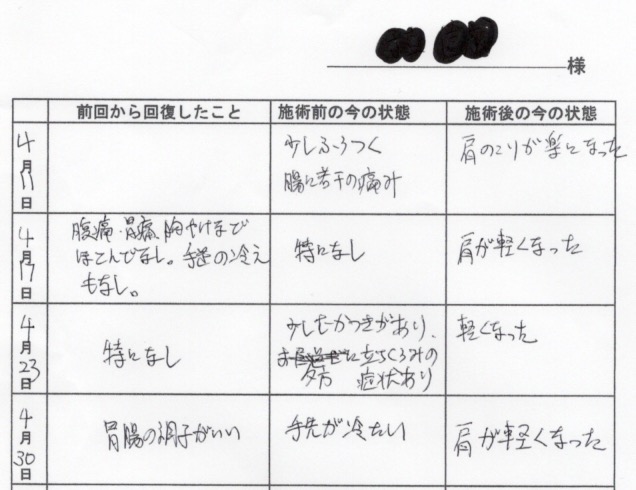 様
前回から回復したこと 施術前の今の状態 施術後の今の状態
4月11日
少しふらつく
腸に若干の痛み
肩のこりが楽になった
4月17日
腹痛・胃痛、胸やけまで
ほとんでなし。手足の冷え
もなし。
特になし
肩が軽くなった
4月23日
特になし
少しむかつきがあり、
に立ちくらみの
夕方 症状あり
軽くなった
4月30日
胃腸の調子がいい
手先が冷たい
肩が軽くなった